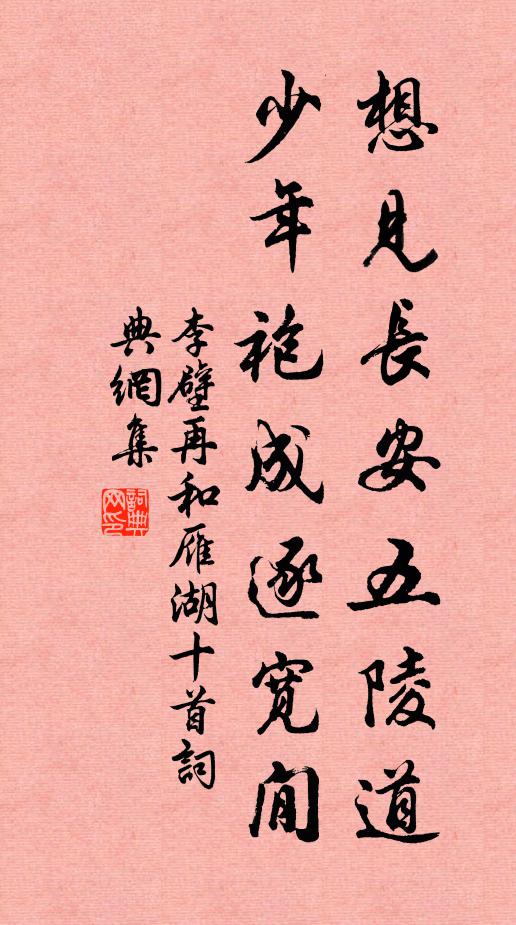 想見長安五陵道
少年袍成逐寬閒
李壁再和雁湖十首詞
典網集
詞典
网印